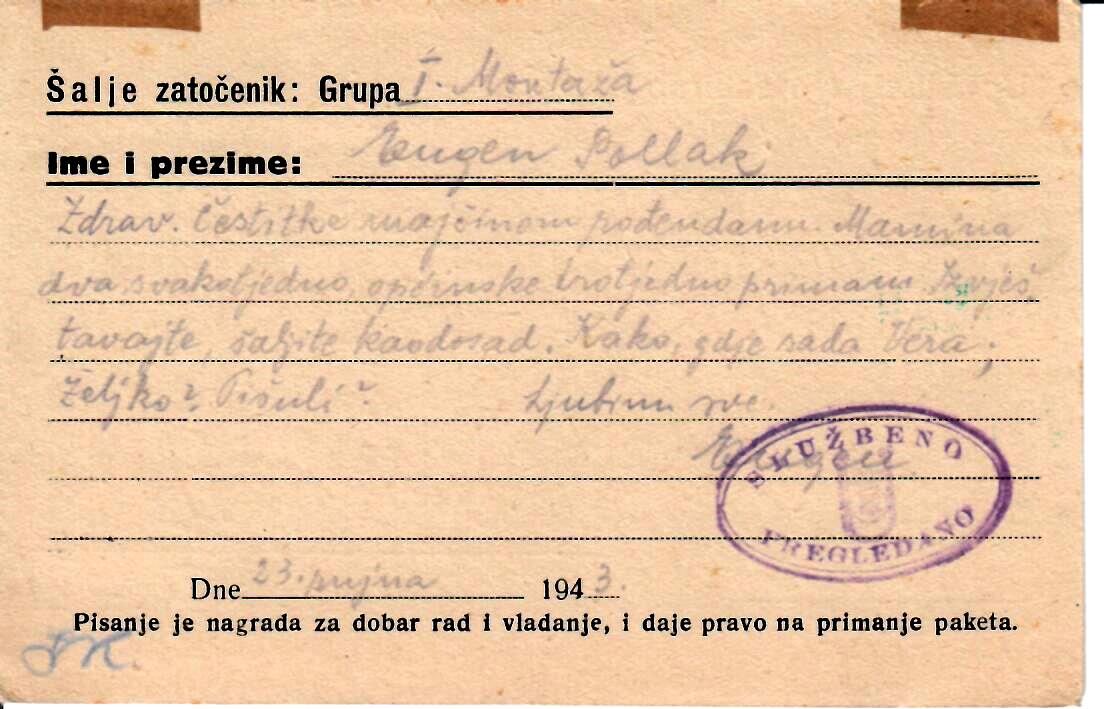 Šalje zatočenik: Grupa I. Montaža
Ime i prezime: Eugen Pollak
Zdrav. Čestitke majčinom rođendanu. Mamina
dva svakotjedno, općinske trotjedno primam. Izvješ-
tavajte, šaljite kaodosad. Kako, gdje sada Vera,
Željko? Pišuli? Ljubim sve.
Eugen
SLUŽBENO
PREGLEDANO
Dne 23. rujna 1943.
Pisanje je nagrada za dobar rad i vladanje, i daje pravo na primanje paketa.